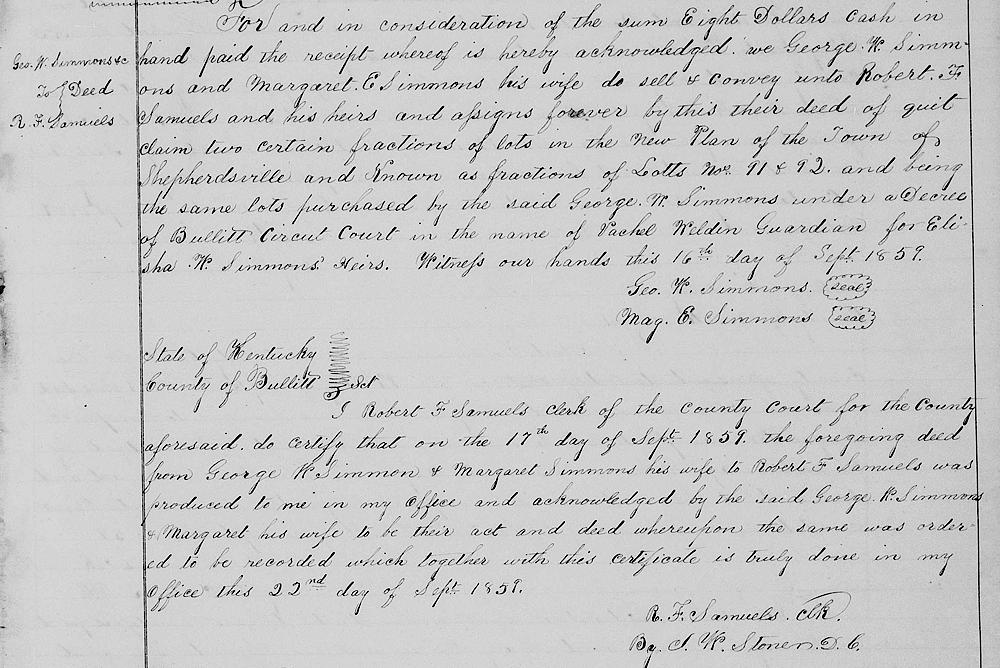 For and in consideration of the sum Eight Dollars Cash in
Geo. W. Simmons &c
To Deed
R. F. Samuels
hand paid the receipt whereof is hereby acknowledged. we George. W. Simm-
ons and Margaret. E Simmons his wife do sell & convey unto Robert. F
Samuels and his heirs and assigns forever by this their deed of quit
claim two certain fractions of lots in the New Plan of the Town of
Shepherdsville and Known as fractions of Lotts Nos. 91 & 92. and being
the same lots purchased by the said George. W. Simmons under a Decree
of Bullitt Circut Court in the name of Vachel Weldin Guardian for Eli-
sha W. Simmons' Heirs. Witness our hands this 16th day of Sept. 1859.
Geo. W. Simmons. Seal
Mag. E. Simmons Seal
State of Kentucky
County of Bullitt Sct
I Robert F Samuels Clerk of the County Court for the County
aforesaid. do certify that on the 17th day of Sept. 1859. the foregoing deed
from George W. Simmon & Margaret Simmons his wife to Robert F Samuels was
produced to me in my Office and acknowledged by the said George W. Simmons
& Margaret his wife to be their act and deed whereupon the same was order-
ed to be recorded which together with this certificate is truly done in my
Office this 22nd day of Sept. 1859.
R. F. Samuels. Clk.
By. J. W. Stoner. D. C.